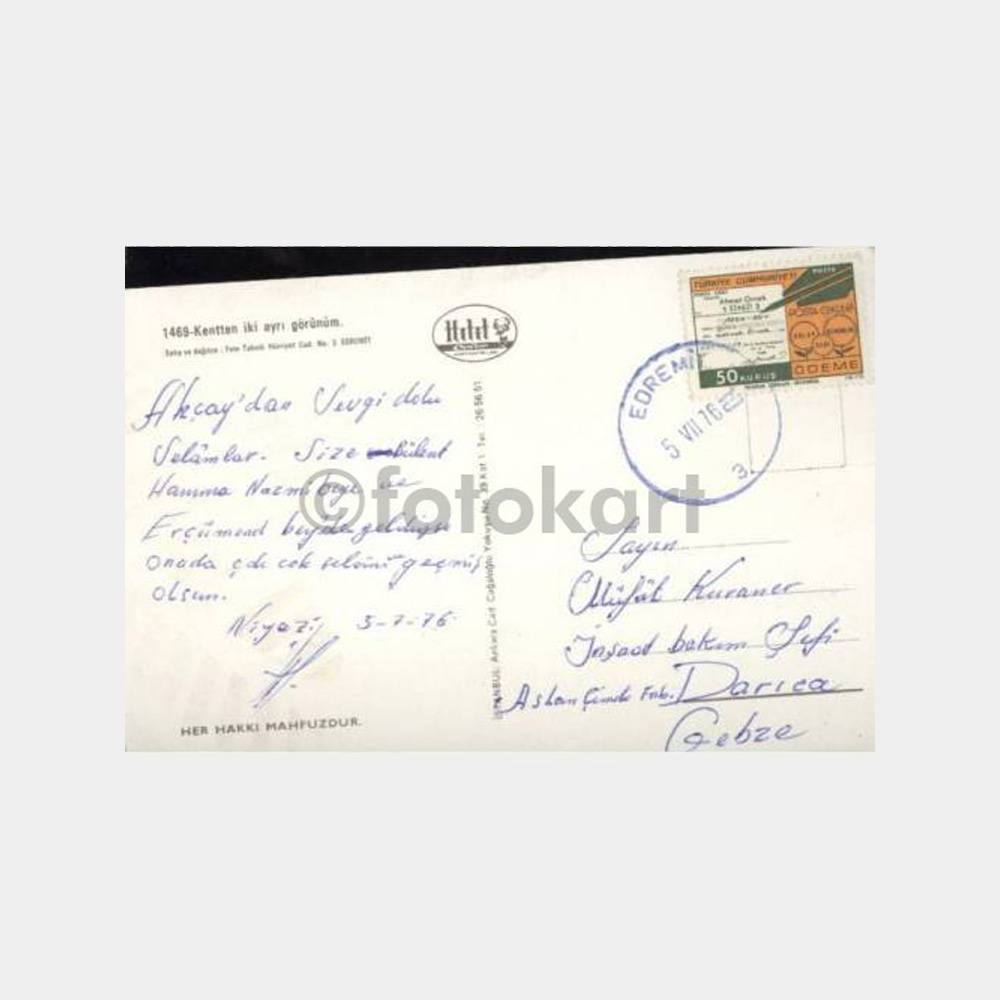 1469-Kentten iki ayrı görünüm.
Satış ve dağıtım : Foto Teknik Hürriyet Cad. No. 2 EDREMİT
Akçay'dan Sevgi dolu
Selâmlar. Size Bülent
Hanıma Nazmi beye ve
Ercümend beyde geldiyse
onada çok selâm geçmiş
olsun.
Niyazi 5-7-76
HER HAKKI MAHFUZDUR.
İSTANBUL: Ankara Cad. Cağaloğlu Yokuşu No. Kat 1 Tel.: 26 56 61
TÜRKİYE CUMHURİYETİ
POSTA
Ahmet Örnek
POSTA ÇEKLERİ
ÖDEME
50 KURUŞ
EDREMİT
5 VII 76
3.
Sayın
Müfit Kuraner
İnşaat bakım Şefi
Aslan Çimento Fab. Darıca
Gebze
©fotokart